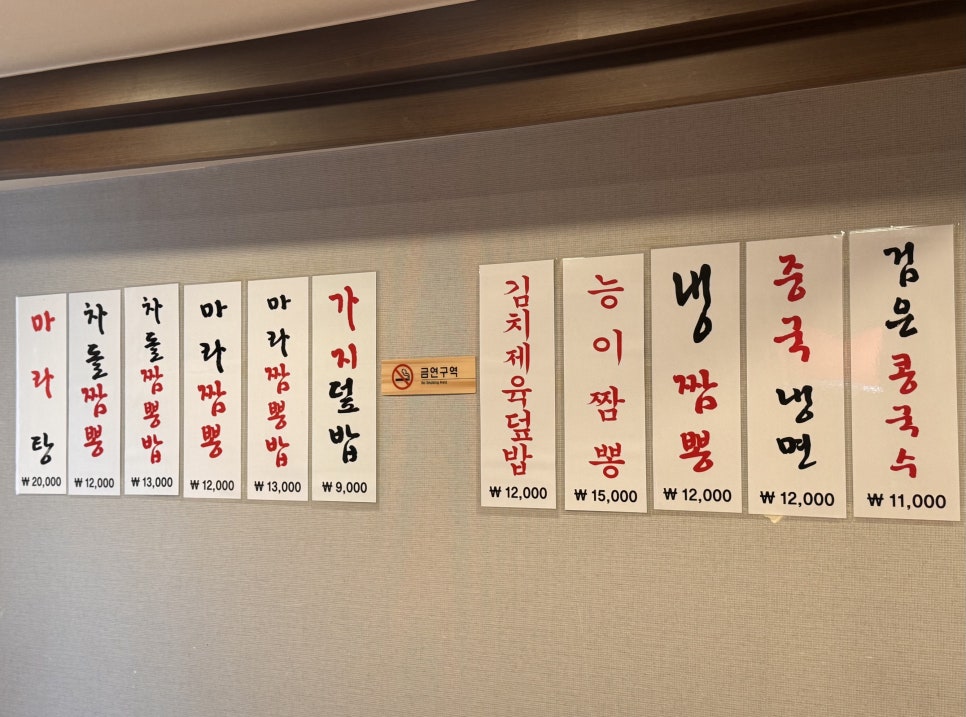 마라탕
₩ 20,000
차돌짬뽕
₩ 12,000
차돌짬뽕밥
₩ 13,000
마라짬뽕
₩ 12,000
마라짬뽕밥
₩ 13,000
가지덮밥
₩ 9,000
금연구역
No Smoking Area
김치제육덮밥
₩ 12,000
능이짬뽕
₩ 15,000
냉짬뽕
₩ 12,000
중국냉면
₩ 12,000
검은콩국수
₩ 11,000